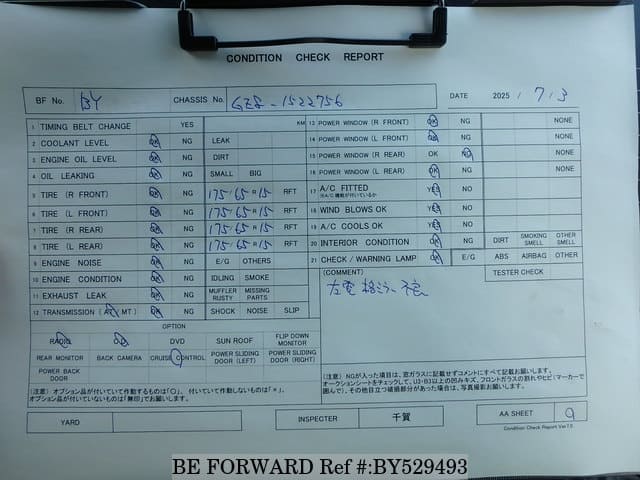 CONDITION CHECK REPORT
BF No. BY CHASSIS No. GZ8-1522756 DATE 2025 / 7 / 3
1 TIMING BELT CHANGE YES KM
2 COOLANT LEVEL OK NG LEAK
3 ENGINE OIL LEVEL OK NG DIRT
4 OIL LEAKING OK NG SMALL BIG
5 TIRE (R FRONT) OK NG 175/65R15 RFT
6 TIRE (L FRONT) OK NG 175/65R15 RFT
7 TIRE (R REAR) OK NG 175/65R15 RFT
8 TIRE (L REAR) OK NG 175/65R15 RFT
9 ENGINE NOISE OK NG E/G OTHERS
10 ENGINE CONDITION OK NG IDLING SMOKE
11 EXHAUST LEAK OK NG MUFFLER RUSTY MISSING PARTS
12 TRANSMISSION (AT/MT) OK NG SHOCK NOISE SLIP
OPTION
RADIO CD DVD SUN ROOF FLIP DOWN MONITOR
REAR MONITOR BACK CAMERA CRUISE CONTROL POWER SLIDING DOOR (LEFT) POWER SLIDING DOOR (RIGHT)
POWER BACK DOOR
(注意) オプション品が付いていて作動するものは「○」、付いていて作動しないものは「×」、
オプション品が付いていないものは「無印」でお願いします。
13 POWER WINDOW (R FRONT) OK NG NONE
14 POWER WINDOW (L FRONT) OK NG NONE
15 POWER WINDOW (R REAR) OK NG NONE
16 POWER WINDOW (L REAR) OK NG NONE
17 A/C FITTED YES NO
※A/C 機能が付いているか
18 WIND BLOWS OK YES NO
19 A/C COOLS OK YES NO
20 INTERIOR CONDITION OK NG DIRT SMOKING SMELL OTHER SMELL
21 CHECK / WARNING LAMP OK NG E/G ABS AIRBAG OTHER
(COMMENT) TESTER CHECK
左電格ミラー不良
(注意) NGが入った項目は、窓ガラスに記載せずコメントにすべて記載お願いします。
オークションシートをチェックして、U3・B3以上の凹みキズ、フロントガラスの割れやヒビ(マーカーで
囲んで)、その他目立つ破損部分があった場合は、写真撮影お願いします。
YARD INSPECTER 千賀 AA SHEET
Condition Check Report Ver7.0
BE FORWARD Ref #:BY529493